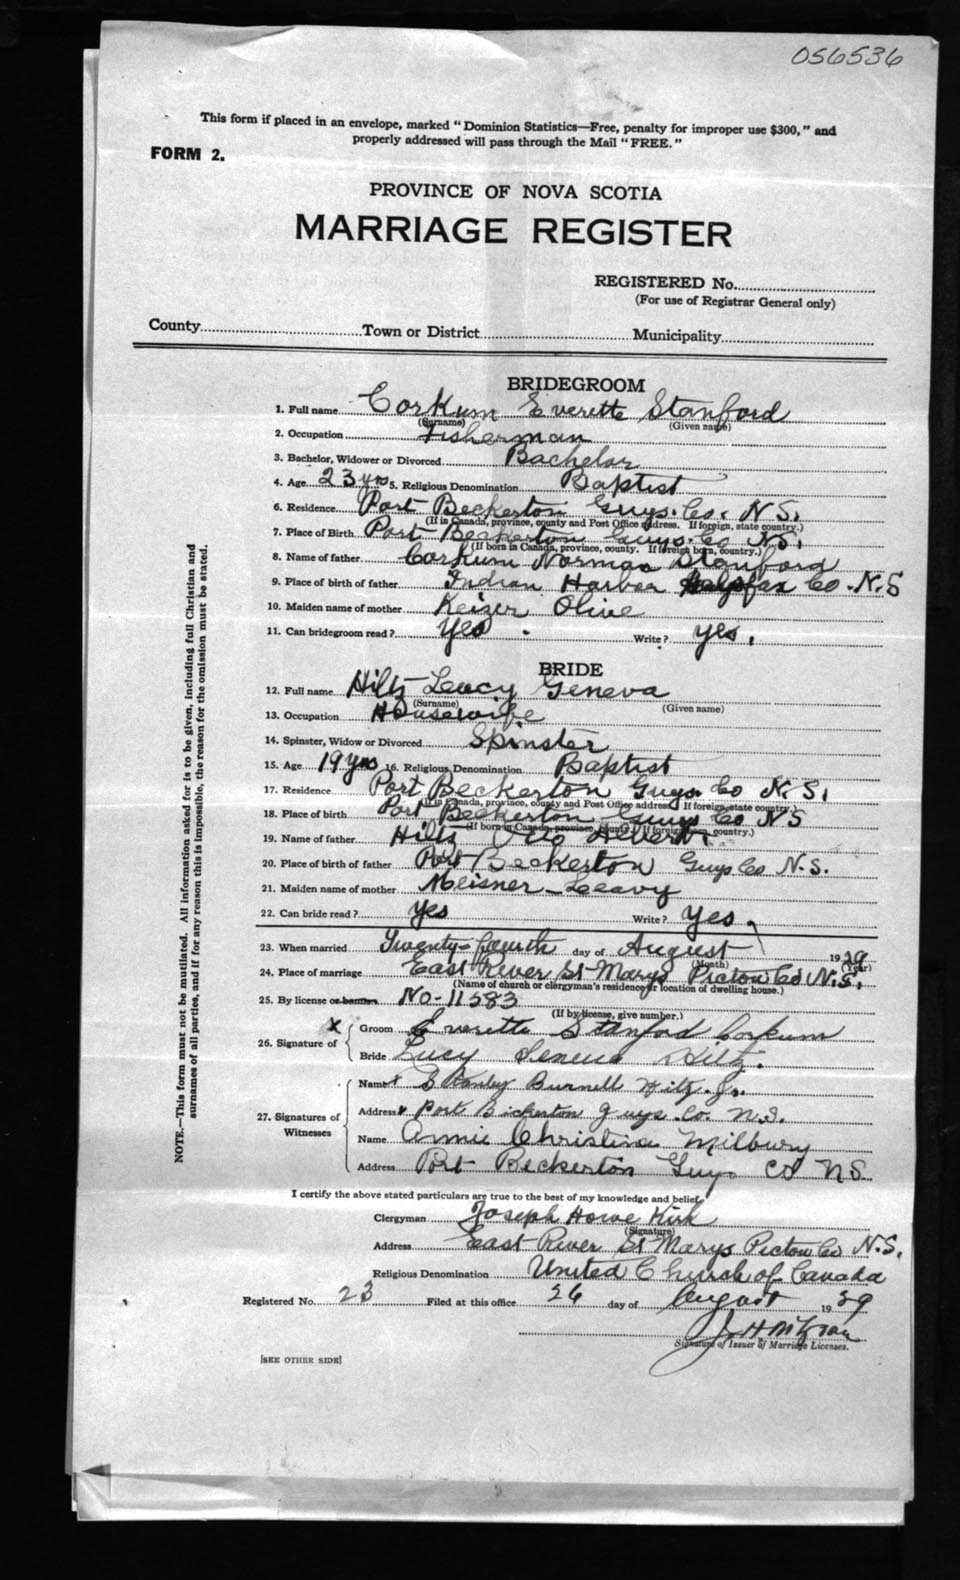 056536
This form if placed in an envelope, marked "Dominion Statistics—Free, penalty for improper use $300," and
properly addressed will pass through the Mail "FREE."
FORM 2.
PROVINCE OF NOVA SCOTIA
MARRIAGE REGISTER
REGISTERED No.
(For use of Registrar General only)
County Town or District Municipality
BRIDEGROOM
1. Full name Corkum Everette Stanford
(Surname) (Given name)
2. Occupation Fisherman
3. Bachelor, Widower or Divorced Bachelor
4. Age 23 yrs 5. Religious Denomination Baptist
6. Residence Port Beckerton Guys. Co. N.S.
(If in Canada, province, county and Post Office address. If foreign, state country.)
7. Place of Birth Port Beckerton Guys. Co N.S.
(If born in Canada, province, county. If foreign born, country.)
8. Name of father Corkum Norman Stanford
9. Place of birth of father Indian Harbor Halifax Co. N.S
10. Maiden name of mother Keizer Olive
11. Can bridegroom read? Yes. Write? yes.
BRIDE
12. Full name Hiltz Leucy Geneva
(Surname) (Given name)
13. Occupation Housewife
14. Spinster, Widow or Divorced Spinster
15. Age 19 yrs 16. Religious Denomination Baptist
17. Residence Port Beckerton Guys. Co N.S.
(If in Canada, province, county and Post Office address. If foreign, state country.)
18. Place of birth Port Beckerton Guys Co NS
(If born in Canada, province, county. If foreign born, country.)
19. Name of father Hiltz
20. Place of birth of father Port Beckerton Guys Co N.S.
21. Maiden name of mother Meisner - Leavy
22. Can bride read? Yes Write? Yes
23. When married Twenty-fourth day of August 1929
(Month) (Year)
24. Place of marriage East River St Marys Picton Co N.S.
(Name of church or clergyman's residence or location of dwelling house.)
25. By license or banns No- 11583
(If by license, give number.)
26. Signature of
X Groom Everette Stanford Corkum
Bride Lucy Geneva Hiltz.
27. Signatures of Witnesses
Name x Stanley Burnell Hiltz. Jr.
Address x Port Bickerton Guys. Co. N.S.
Name Annie Christina Milbury
Address Port Beckerton Guys Co N S.
I certify the above stated particulars are true to the best of my knowledge and belief.
Clergyman Joseph Howe Kirk
(Signature)
Address East River St Marys Picton Co N.S.
Religious Denomination United Church of Canada
Registered No. 23 Filed at this office 26 day of August 1929
Signature of Issuer of Marriage Licenses.
[SEE OTHER SIDE]
NOTE.—This form must not be mutilated. All information asked for is to be given, including full Christian and
surnames of all parties, and if for any reason this is impossible, the reason for the omission must be stated.